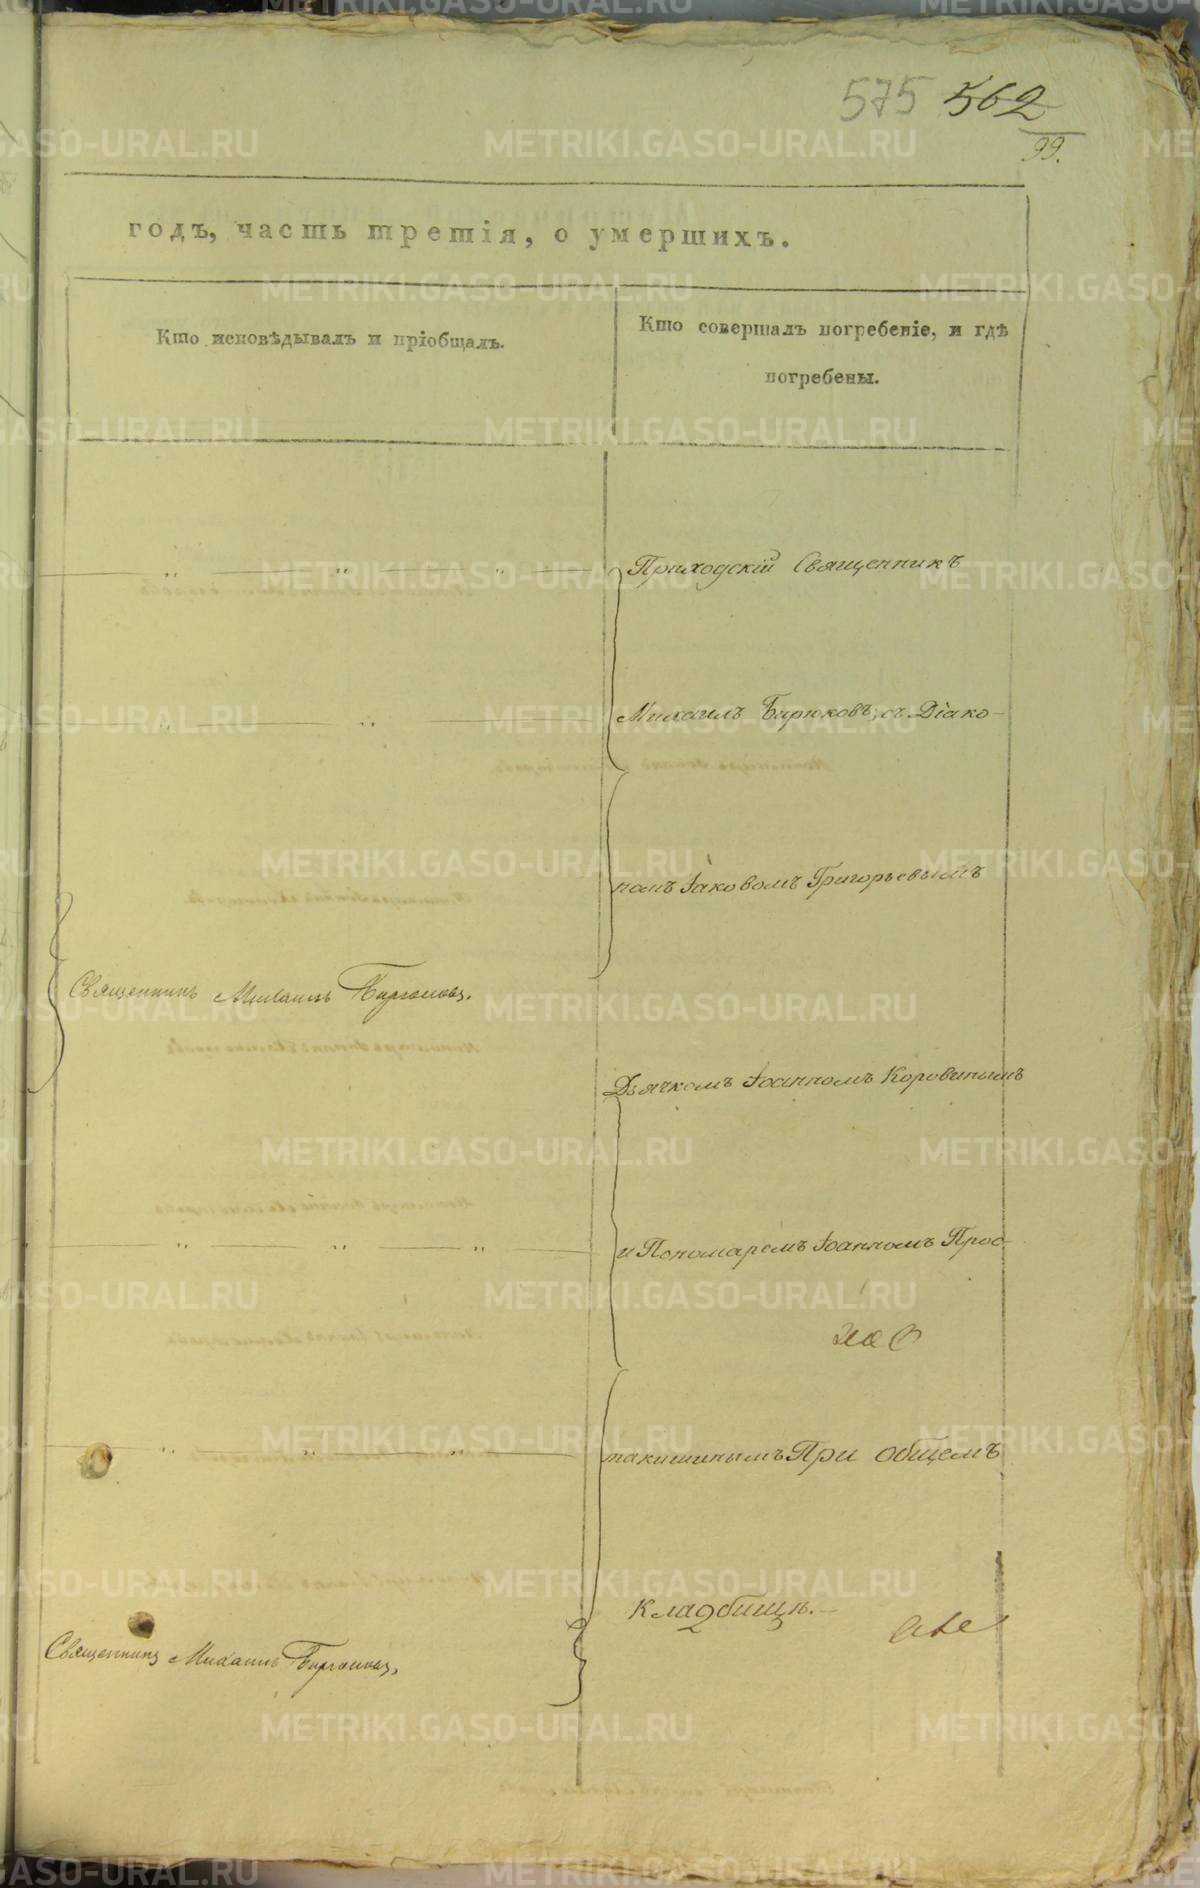 575 562
99.
годъ, часть третія, о умершихъ.
Кто исповѣдывалъ и пріобщалъ.
Кто совершалъ погребеніе, и гдѣ
погребены.
Приходскій Священникъ
Михаилъ Бирюковъ, съ Діако-
номъ Іаковомъ Григорьевымъ
Священникъ Михаилъ Бирюковъ.
Дьячкомъ Іоанномъ Коровинымъ
и Пономаремъ Іоанномъ Прос-
такишинымъ При общемъ
Кладбищѣ.
Священникъ Михаилъ Бирюковъ,
METRIKI.GASO-URAL.RU